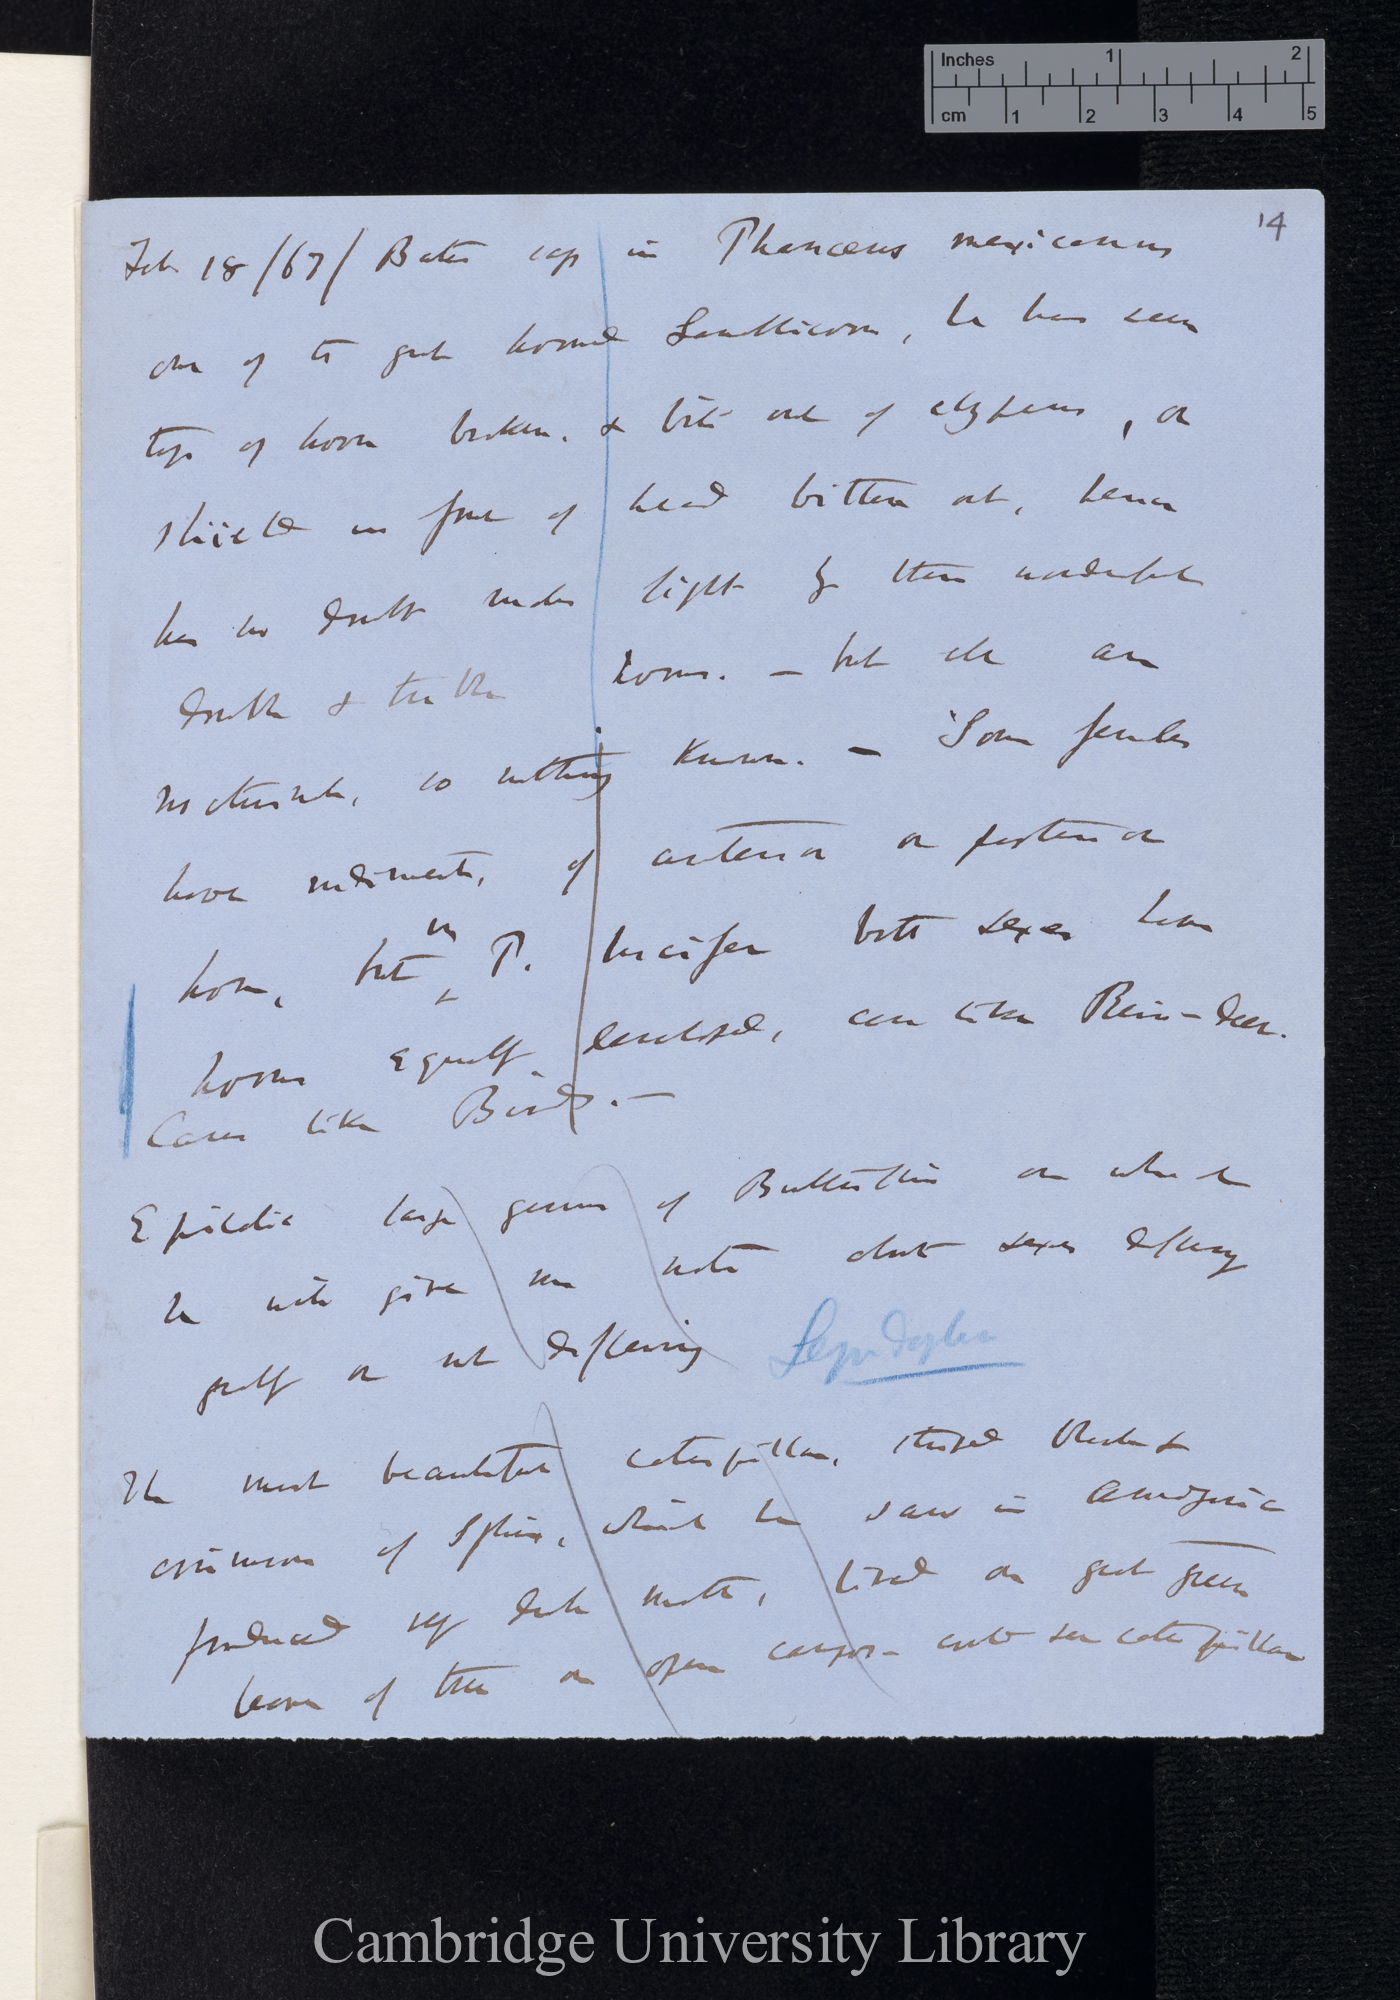 Inches 1 2
cm 1 2 3 4 5
14
Feb 18/67/ Bates says in Phanæus mexicanus
one of the great horned Lamellicorn, he has seen
tips of horn broken. & bits out of clypeus, or
shield in front of head bitten out, hence
has no doubt males fight by these wonderful
horns. — but all are
nocturnal, so nothing known. — Some females
have rudiments, of anterior or posterior
horn, but in P. lucifer both sexes have
horns equally developed, case like Rein-deer.
Cases like Birds. —
Epicalia large genus of Butterflies on which
he will give me note about sexes differing
greatly or not differing Lepidoptera
The most beautiful caterpillar, striped black &
crimson of Sphinx, which he saw in Amazonia
produced very dark moth, lived on great green
leaves of tree on open campos — could see caterpillar
Cambridge University Library